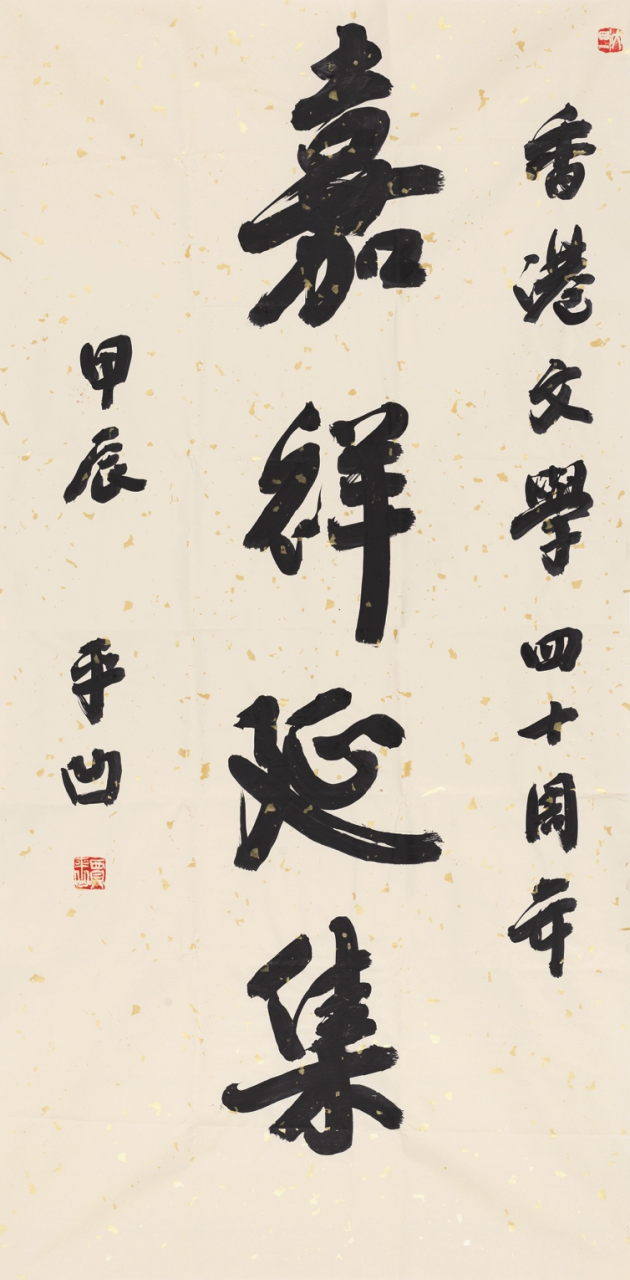 香港文學四十周年
嘉祥延集
甲辰 平凹